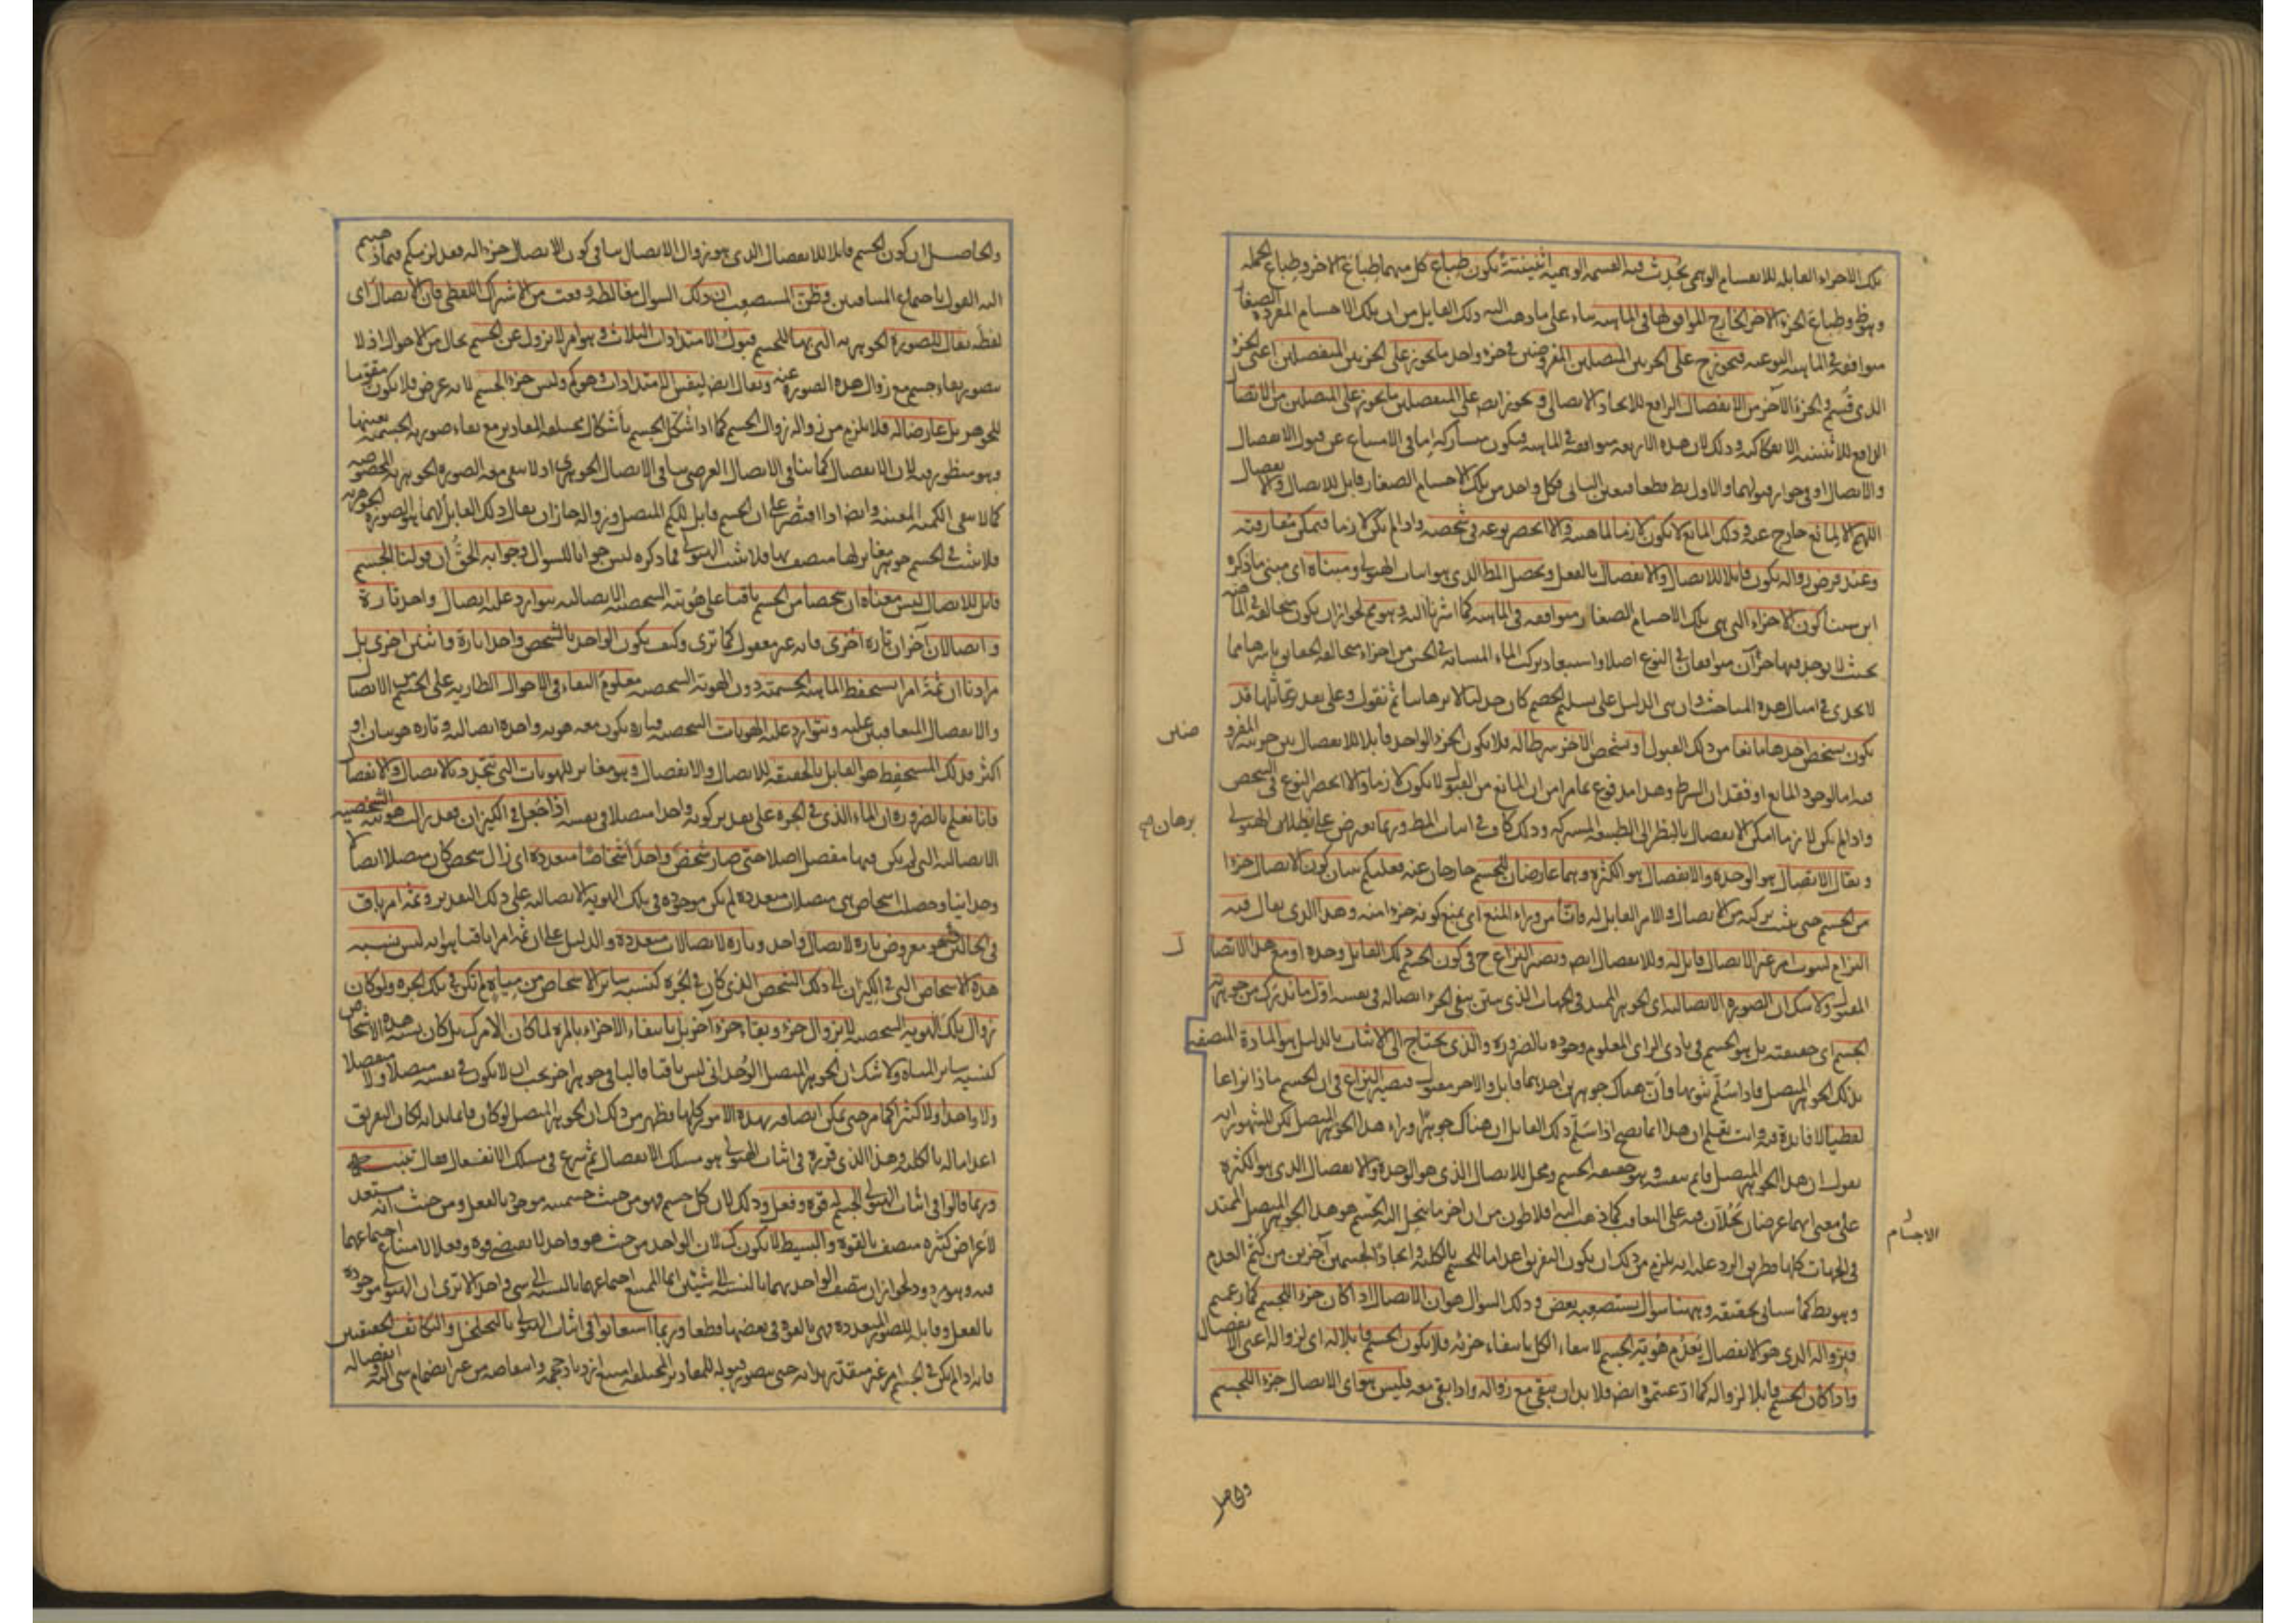 تلك الاجزاء القابلة للانقسام الوهمى تحدث فيه القسمة الوهمية اثنينية يكون طباع كل منهما طباع الاخر وطباع الجملة
وطباع الجزء الاخر الخارج الموافق لها فى الماهية بناء على ما ذهب اليه ذلك القايل من ان تلك الاجسام المفردة الصغار
متوافقة فى الماهية النوعية فيجوز ح على الجزئين المتصلين المفروضين فى جزء واحد ما يجوز على الجزئين المنفصلين اعنى الجزء
الذى قسم والجزء الآخر من الانفصال الرافع للاتحاد الاتصالى ويجوز ايض على المنفصلين ما يجوز على المتصلين من الاتصال
الرافع للاثنينية الانفكاكية وذلك لان هذه الاربعة متوافقة فى الماهية فيكون متشاركة اما فى الامتناع عن قبول الانفصال
والاتصال او فى جواز قبولهما والاول بط قطعا فتعين الثانى فكل واحد من تلك الاجسام الصغار قابل للاتصال والانفصال
اللهم الا لمانع خارج عنه وذلك المانع لا يكون لازما للماهية والا انحصر نوعه فى شخصه واذا لم يكن لازما فيمكن مفارقته
وعند فرض زواله يكون قابلا للاتصال والانفصال بالفعل ويحصل المط الذى هو اثبات الهيولى ومبناه اى مبنى ما ذكره
ابن سينا كون الاجزاء التى هى تلك الاجسام الصغار متوافقة فى الماهية كما اشرنا اليه وهو مم لجواز ان يكون متخالفة فى الماهية
بحيث لا يوجد فيها جزآن متوافقان فى النوع اصلا واستبعاد تركب الماء المتشابه فى الحس من اجزاء متخالفة الحقايق باسرها مما
لا يجدى فى امثال هذه المباحث وان بنى الدليل على تسليم الخصم كان جدليا لا برهانيا ثم نقول وعلى بعد تماثلها قد
يكون تشخص احدها مانعا من ذلك القبول او تشخص الاخر شرطا له فلا يكون الجزء الواحد قابلا للانفصال بين جزئيه المفرو
ضين
فيه اما لوجود المانع او فقدان الشرط وهذا مدفوع بما مر من ان المانع من القبول لا يكون لازما والا انحصر النوع فى الشخص
واذا لم يكن لازما امكن الانفصال بالنظر الى الطبيعة المشتركة وذلك كاف فى اثبات المط وربما يعرض على ابطال الهيولى
برهان
ويقال الاتصال هو الوحدة والانفصال هو الكثرة وهما عارضان للجسم خارجان عنه فعليكم بيان كون الاتصال جزءا
من الجسم حتى يثبت تركبه من الاتصال والامر القابل له وانا من وراء المنع اى بمنع كونه جزءا منه وهذا الذى يقال فيه
التزام لثبوت امر غير الاتصال قابل له وللانفصال ايض ويصير النزاع ح فى كون الجسم ذلك القابل وحده او مع هذا الاتصا
ل
المقبول ولا شك ان الصورة الاتصالية اى الجوهر الممتد فى الجهات الذى بنى نفى الجزء اتصاله فى نفسه اول ما ندرك من جوهرية
الجسم اى حقيقته بل هو الجسم فى بادى الراى المعلوم وجوده بالضرورة والذى يحتاج الى الاثبات بالدليل هو المادة المتصفة
بذلك الجوهر المتصل فاذا سلم ثبوتها وان هناك جوهرين احدهما قابل والاخر مقبول فيصير النزاع فى ان الجسم ماذا نزاعا
لفظيا لا فايدة فيه وانت تعلم ان هذا انما يصح اذا سلم ذلك القايل ان هناك جوهرا وراء هذا الجوهر المتصل لكن المشهور انه
يقول ان هذا الجوهر المتصل قايم بنفسه وهو حقيقة الجسم ومحل للاتصال الذى هو الوحدة والانفصال الذى هو الكثرة
على معنى انهما عرضان يحلان فيه على التعاقب كما ذهب اليه افلاطون من ان اخر ما ينحل اليه الجسم هو هذا الجوهر المتصل الممتد
الاجسام
فى الجهات كلها فطريق الرد عليه انه يلزم من ذلك ان يكون التفريق اعداما للجسم بالكلية وايجادا لجسمين آخرين من كتم العدم
وهو بط كما سيأتى تحقيقه وههنا سؤال يستصعبه بعض وذلك السؤال هو ان الاتصال اذا كان جزءا للجسم كما زعمتم
فبزواله الذى هو الانفصال يعدم هوية الجسم لانتفاء الكل بانتفاء جزئه فلا يكون الجسم قابلا له اى لزواله اعنى الانفصال
واذا كان الجسم قابلا لزواله كما ادعيتموه ايض فلا بد ان يبقى مع زواله واذا بقى معه فليس هو اى الاتصال جزءا للجسم
والحاصل
والحاصل ان كون الجسم قابلا للانفصال الذى هو زوال الاتصال ينافى كون الاتصال جزءا له فعد لزمكم فيما ذهبتم
اليه القول باجتماع المتنافيين وظن المستصعب ان ذلك السؤال مغالطة وقعت من الاشتراك اللفظى فان الاتصال اى
لفظه يقال للصورة الجوهرية التى بها للجسم قبول الامتدادات الثلاث وهو امر لا يزول عن الجسم بحال من الاحوال اذ لا
يتصور بقاء جسم مع زوال هذه الصورة عنه ويقال ايض لنفس الامتدادات وهو كم وليس جزء الجسم لانه عرض فلا يكون مقوما
للجوهر بل عارضا له فلا يلزم من زواله زوال الجسم كما اذا شكل الجسم باشكال مختلفة المقادير مع بقاء صورته الجسمية بعينها
وهو منظور فيه لان الانفصال كما ينافى الاتصال العرضى ينافى الاتصال الجوهرى اذ لا يبقى معه الصورة الجوهرية المخصوصة
كما لا يبقى الكمية المعينة وايضا اذا اقتصر على ان الجسم قابل للكم المتصل وزواله جاز ان يقال ذلك القابل لهما هو الصورة الجوهرية
فلا يثبت فى الجسم جوهر مغاير لها متصف بها فلا يثبت الهيولى فما ذكره ليس جوابا للسؤال وجوابه الحق ان قولنا الجسم
قابل للاتصال ليس معناه ان شخصا من الجسم باقيا على هويته الشخصية الاتصالية يتوارد عليه اتصال واحد تارة
واتصالان آخران تارة اخرى فانه غير معقول كما ترى وكيف يكون الواحد بالشخص واحدا تارة واثنين اخرى بل
مرادنا ان ثمة امرا يستحفظ الماهية الجسمية دون الهوية الشخصية معلوم البقاء فى الاحوال الطارية على الجسم من الاتصال
والانفصال المتعاقبين عليه ويتوارد عليه الهويات الشخصية فتارة يكون معه هوية واحدة اتصالية وتارة هويتان او
اكثر فذلك المستحفظ هو القابل بالحقيقة للاتصال والانفصال وهو مغاير للهويات التى تتجدد بالاتصال والانفصال
فانا نعلم بالضرورة ان الماء الذى فى الجرة على تقدير كونه واحدا متصلا فى نفسه اذا جعل فى الكيزان فقد زالت هويته الشخصية
الاتصالية التى لم يكن فيها مفصل اصلا حتى صار شخص واحد اشخاصا متعددة اى زال شخص كان متصلا اتصالا
وحدانيا وحصل اشخاص هى متصلات متعددة لم يكن موجودة فى تلك الهوية الاتصالية على ذلك التقدير وثمة امر باق
فى الحالتين هو معروض تارة لاتصال واحد وتارة لاتصالات متعددة والدليل على ان ثمة امرا باقيا هو انه ليس نسبة
هذه الاشخاص التى فى الكيزان الى ذلك الشخص الذى كان فى الجرة كنسبة ساير الاشخاص من مياه لم تكن فى تلك الجرة ولو كان
زوال تلك الهوية الشخصية لا بزوال جزء وبقاء جزء اخر بل بانتفاء الاجزاء بالمرة لما كان الامر كك بل كان نسبة هذه الاشخاص
كنسبة ساير المياه ولا شك ان الجوهر المتصل الوحدانى ليس باقيا فالباقى جوهر اخر يجب ان لا يكون فى نفسه متصلا ولا منفصلا
ولا واحدا ولا كثيرا كما مر حتى يمكن اتصافه بهذه الامور كلها فظهر من ذلك ان الجوهر المتصل لو كان قايما بذاته لكان التفريق
اعداما له بالكلية وهذا الذى قرره فى اثبات الهيولى هو مسلك الانفصال ثم شرع فى مسلك الانفعال فقال تنبيه
وربما قالوا فى اثبات الهيولى الجسم له قوة وفعل وذلك لان كل جسم فهو من حيث جسميته موجود بالفعل ومن حيث انه مستعد
لاعراض كثيرة متصف بالقوة والبسيط لا يكون كك لان الواحد من حيث هو واحد لا يقتضى قوة وفعلا لامتناع اجتماعهما
فيه وهو مردود لجواز ان يتصف الواحد بهما بالنسبة الى شيئين انما الممتنع اجتماعهما بالنسبة الى شىء واحد الا ترى ان الهيولى موجودة
بالفعل وقابلة للصور المتعددة فهى بالقوة فى بعضها قطعا وربما استعانوا فى اثبات الهيولى بالتخلخل والتكاثف الحقيقيين
فانه اذا لم يكن فى الجسم امر غير متقدر بذاته حتى يتصور قبوله للمقادير المختلفة امتنع ازدياد حجمه وانتقاصه من غير انضمام شىء اليه وانفصاله